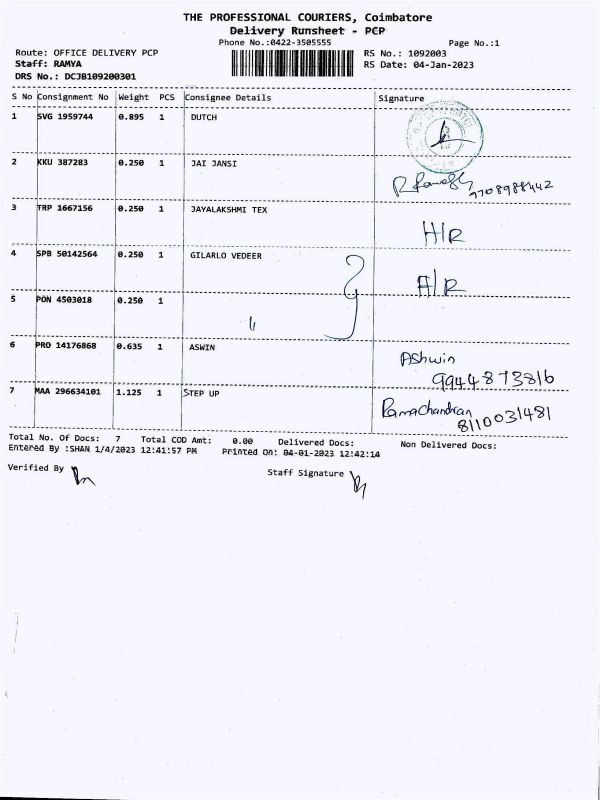 THE PROFESSIONAL COURIERS, Coimbatore
Delivery Runsheet - PCP
Phone No.:0422-3505555
Page No.:1
Route: OFFICE DELIVERY PCP
RS No.: 1092003
Staff: RAMYA
RS Date: 04-Jan-2023
DRS No.: DCJB109200301
S No Consignment No Weight PCS Consignee Details Signature
1 SVG 1959744 0.895 1 DUTCH
2 KKU 387283 0.250 1 JAI JANSI
9708988442
3 TRP 1667156 0.250 1 JAYALAKSHMI TEX
H/R
4 SPB 50142564 0.250 1 GILARLO VEDEER
A/R
5 PON 4503018 0.250 1
6 PRO 14176868 0.635 1 ASWIN
Ashwin
9944873816
7 MAA 296634101 1.125 1 STEP UP
Ramachandran
8110031481
Total No. Of Docs: 7 Total COD Amt: 0.00 Delivered Docs: Non Delivered Docs:
Entered By :SHAN 1/4/2023 12:41:57 PM Printed On: 04-01-2023 12:42:14
Verified By
Staff Signature